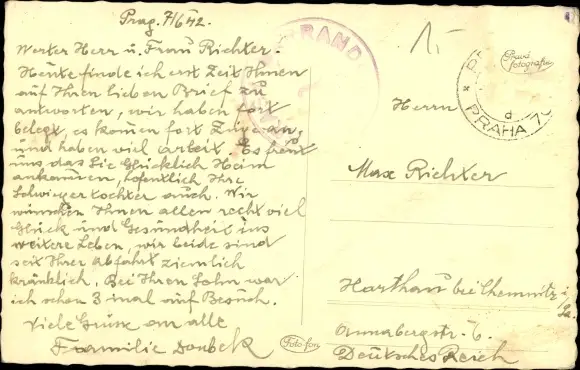 Prag. 7/6 42.
Werter Herr u. Frau Richter.
Heute finde ich erst Zeit Ihnen
auf Ihren lieben Brief zu
antworten, wir haben fort
belegt, es kommen fort
und haben viel Arbeit. Es freut
uns, das Sie Glücklich Heim
ankamen, hofentlich Ihre
Schwiegertochter auch. Wir
wünschen Ihnen allen recht viel
Glück und Gesundheit ins
weitere Leben, wir beide sind
seit Ihrer Abfahrt ziemlich
kränklich. Bei Ihren Sohn war
ich schon 3 mal auf Besuch.
Viele Grüse an alle
Familie Doubek
Foto-fon
Pravá
fotografie
PRAHA
d
Herrn
Max Richter
Harthau bei Chemnitz i/Sa.
Annabergstr. 6.
Deutsches Reich